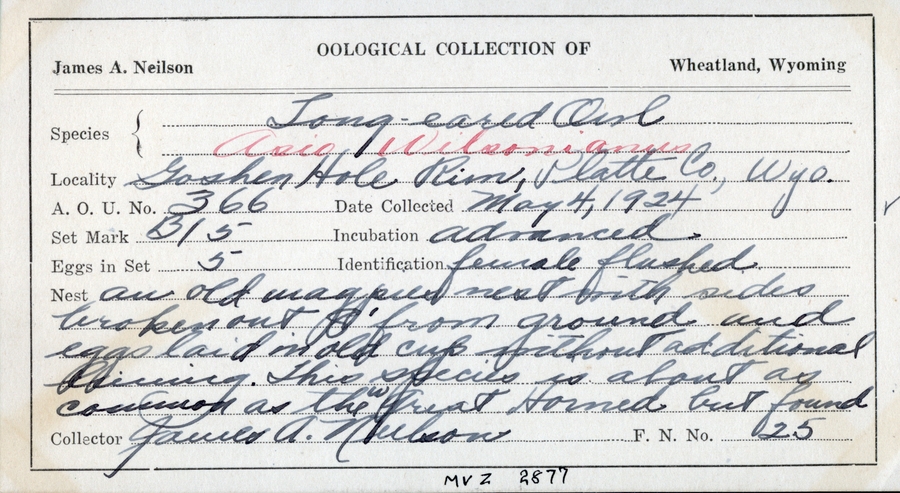 OOLOGICAL COLLECTION OF
James A. Neilson Wheatland, Wyoming
Species Long-eared Owl
Asio Wilsonianus
Locality Goshen Hole Rim, Platte Co., Wyo.
A. O. U. No. 366 Date Collected May 4, 1924
Set Mark B/5 Incubation advanced.
Eggs in Set 5 Identification female flushed.
Nest an old magpies nest with sides
broken out from ground and
eggs laid in old cup without additional
lining. This species is about as
common as the Great Horned but found
Collector James A. Neilson F. N. No. 25
MVZ 2877